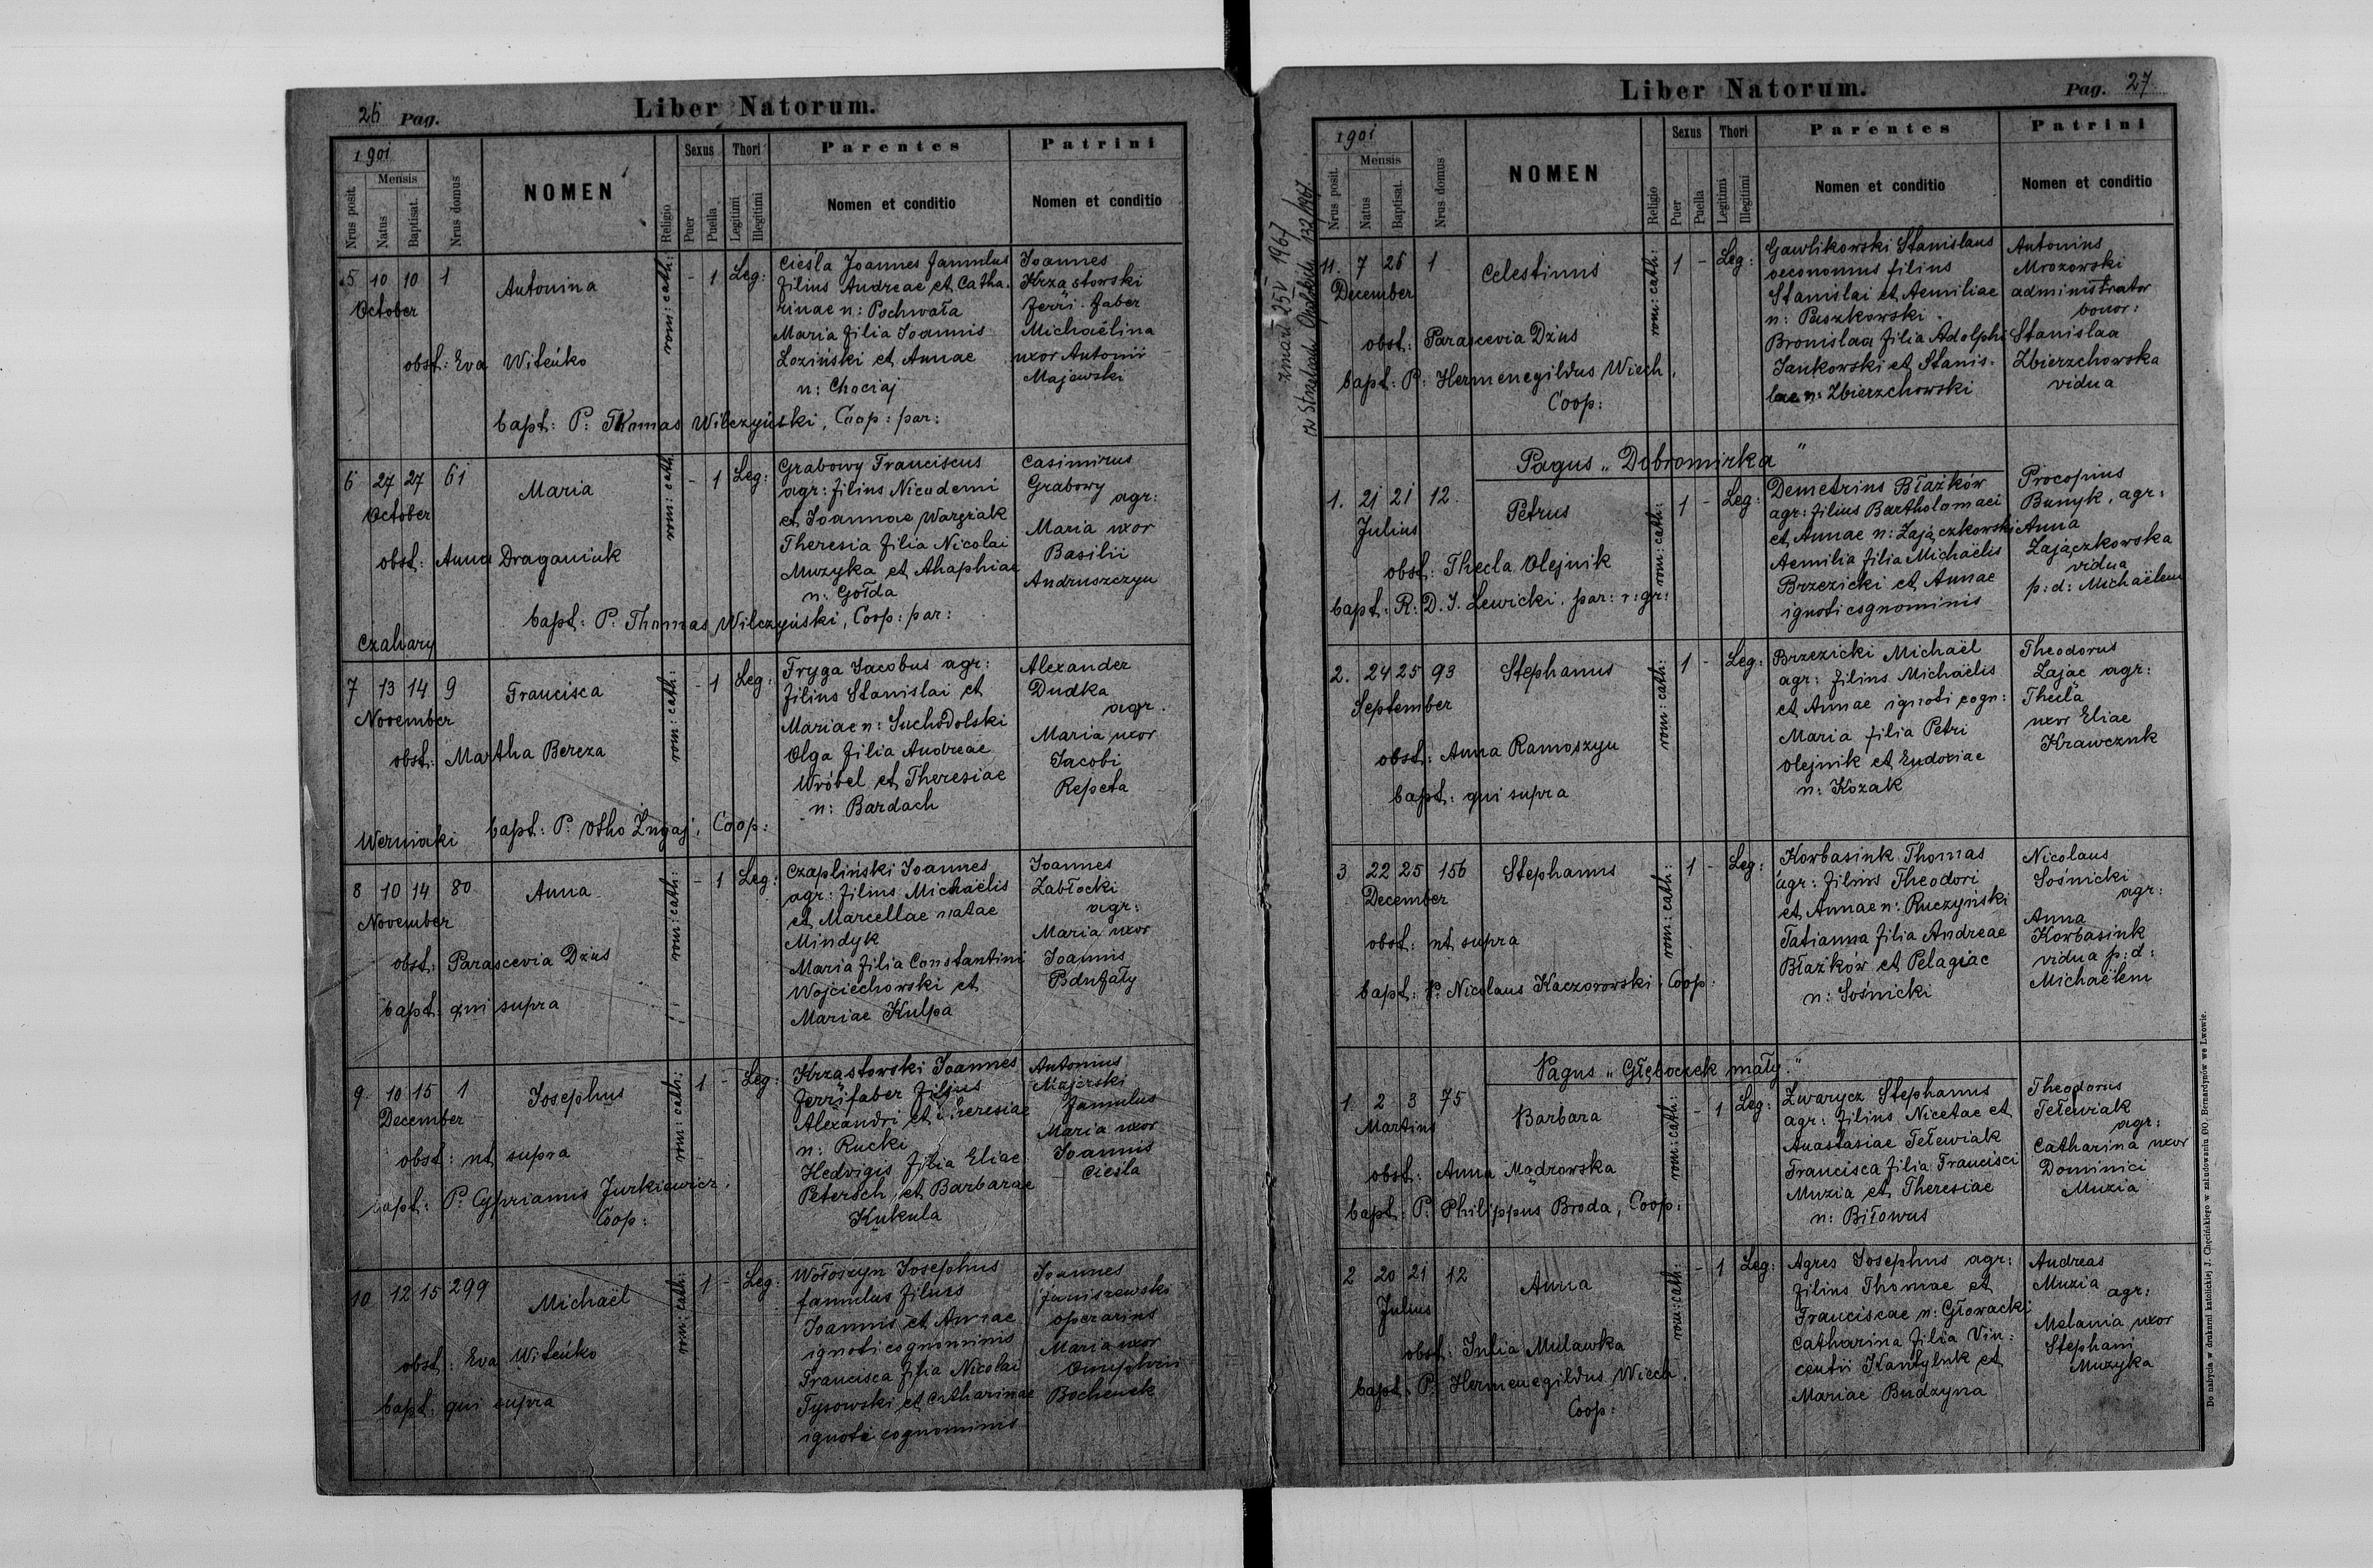 26 Pag.
Liber Natorum.
1901
Nrus posit.
Mensis
Natus
Baptisat.
Nrus domus
NOMEN
Religio
Sexus
Puer
Puella
Thori
Legitimi
Illegitimi
Parentes
Nomen et conditio
Patrini
Nomen et conditio
5 10 10 1
October
Antonina
rom: cath:
- 1 Leg:
Cieśla Joannes famulus
filius Andreae et Catha-
rinae n: Pochwała
Maria filia Joannis
Loziński et Annae
n: Chociaj
Joannes
Krząstowski
ferri-faber
Michaëlina
uxor Antonii
Majewski
obst: Eva Witeńko
bapt: P: Thomas Wilczyński, Coop: par:
6 27 27 61
October
Maria
rom: cath:
- 1 Leg:
Grabowy Franciscus
agr: filius Nicodemi
et Joannae Warziak
Theresia filia Nicolai
Muzyka et Ahaphiae
n: Gołda
Casimirus
Grabowy
agr:
Maria uxor
Basilii
Andruszczyn
obst: Anna Draganiuk
bapt: P: Thomas Wilczyński, Coop: par:
Czahary
7 13 14 9
November
Francisca
rom: cath:
- 1 Leg:
Fryga Jacobus agr:
filius Stanislai et
Mariae n: Suchodolski
Olga filia Andreae
Wróbel et Theresiae
n: Bardach
Alexander
Dudka
agr.
Maria uxor
Jacobi
Repeta
obst: Martha Bereza
bapt: P: Otho Żugaj, Coop:
Werniaki
8 10 14 80
November
Anna
rom: cath:
- 1 Leg:
Czapliński Joannes
agr: filius Michaëlis
et Marcellae natae
Mindyk
Maria filia Constantini
Wojciechowski et
Mariae Kulpa
Joannes
Zabłocki
agr:
Maria uxor
Joannis
obst: Parascevia Dzus
bapt: qui supra
9 10 15 1
December
Josephus
rom: cath:
1 - Leg:
Krząstowski Joannes
ferri faber filius
Alexandri et Theresiae
n: Rucki
Hedvigis filia Eliae
Petersch et Barbarae
Kukula
Antonius
Majerski
famulus
Maria uxor
Joannis
Cieśla
obst: ut supra
bapt: P: Cyprianus Jurkiewicz,
Coop:
10 12 15 299
Michael
rom: cath:
1 - Leg:
Wołoszyn Josephus
famulus filius
Joannis et Annae
ignoti cognominis
Francisca filia Nicolai
Tysowski et Catharinae
ignoti cognominis
Joannes
Janiszewski
operarius
Maria uxor
Bochenek
obst: Eva Witeńko
bapt: qui supra
Liber Natorum.
Pag. 27
zmarł 25 V 1967
w Strzelcach Opolskich 132/1967
1901
Nrus posit.
Mensis
Natus
Baptisat.
Nrus domus
NOMEN
Religio
Sexus
Puer
Puella
Thori
Legitimi
Illegitimi
Parentes
Nomen et conditio
Patrini
Nomen et conditio
11. 7 26 1
December
Celestinus
rom: cath:
1 - Leg:
Gawlikowski Stanislaus
oeconomus filius
Stanislai et Aemiliae
n: Paszkowski.
Bronislaa filia Adolphi
Jankowski et Stanis-
lae n: Zbierzchowski
Antonius
Mrozowski
administrator
bonor:
Stanislaa
Zbierzchowska
vidua
obst: Parascevia Dzus
bapt: P: Hermenegildus Wiech,
Coop:
Pagus „Dobromirka"
1. 21 21 12.
Julius
Petrus
rom: cath:
1 - Leg:
Demetrius Błażków
agr: filius Bartholomaei
et Annae n: Zajączkowski
Aemilia filia Michaëlis
Brzezicki et Annae
ignoti cognominis
Procopius
Bunyk, agr:
Anna
Zajączkowska
vidua
p: d: Michaëlem
obst: Thecla Olejnik
bapt: R: D. J. Lewicki, par: r: gr:
2. 24 25 93
September
Stephanus
rom: cath:
1 - Leg:
Brzezicki Michaël
agr: filius Michaëlis
et Annae ignoti cogn:
Maria filia Petri
Olejnik et Eudoxiae
n: Kozak
Theodorus
Zając agr:
Thecla
uxor Eliae
Krawczuk
obst: Anna Ramoszyn
bapt: qui supra
3 22 25 156
December
Stephanus
rom: cath:
1 - Leg:
Korbasiuk Thomas
agr: filius Theodori
et Annae n: Ruczyński
Tatianna filia Andreae
Błażków et Pelagiae
n: Sośnicki
Nicolaus
Sośnicki
agr:
Anna
Korbasiuk
vidua p: d:
Michaëlem
obst: ut supra
bapt: P: Nicolaus Kaczorowski, Coop:
Pagus „Głęboczek mały."
1. 2 3 75
Martius
Barbara
rom: cath:
- 1 Leg:
Zwarycz Stephanus
agr: filius Nicetae et
Anastasiae Tełewiak
Francisca filia Francisci
Muzia et Theresiae
n: Biłowus
Theodorus
Tełewiak
agr:
Catharina uxor
Dominici
Muzia
obst: Anna Mądrowska
bapt: P: Philippus Broda, Coop:
2 20 21 12
Julius
Anna
rom: cath:
- 1 Leg:
Agres Josephus agr:
filius Thomae et
Franciscae n: Głowacki
Catharina filia Vin-
centii Kantyluk et
Mariae Budzyna
Andreas
Muzia
agr:
Melania uxor
Stephani
Muzyka
obst: Julia Mulawka
bapt: P: Hermenegildus Wiech,
Coop:
Do nabycia w drukarni katolickiej J. Chęcińskiego w zabudowaniu OO. Bernardynów we Lwowie.